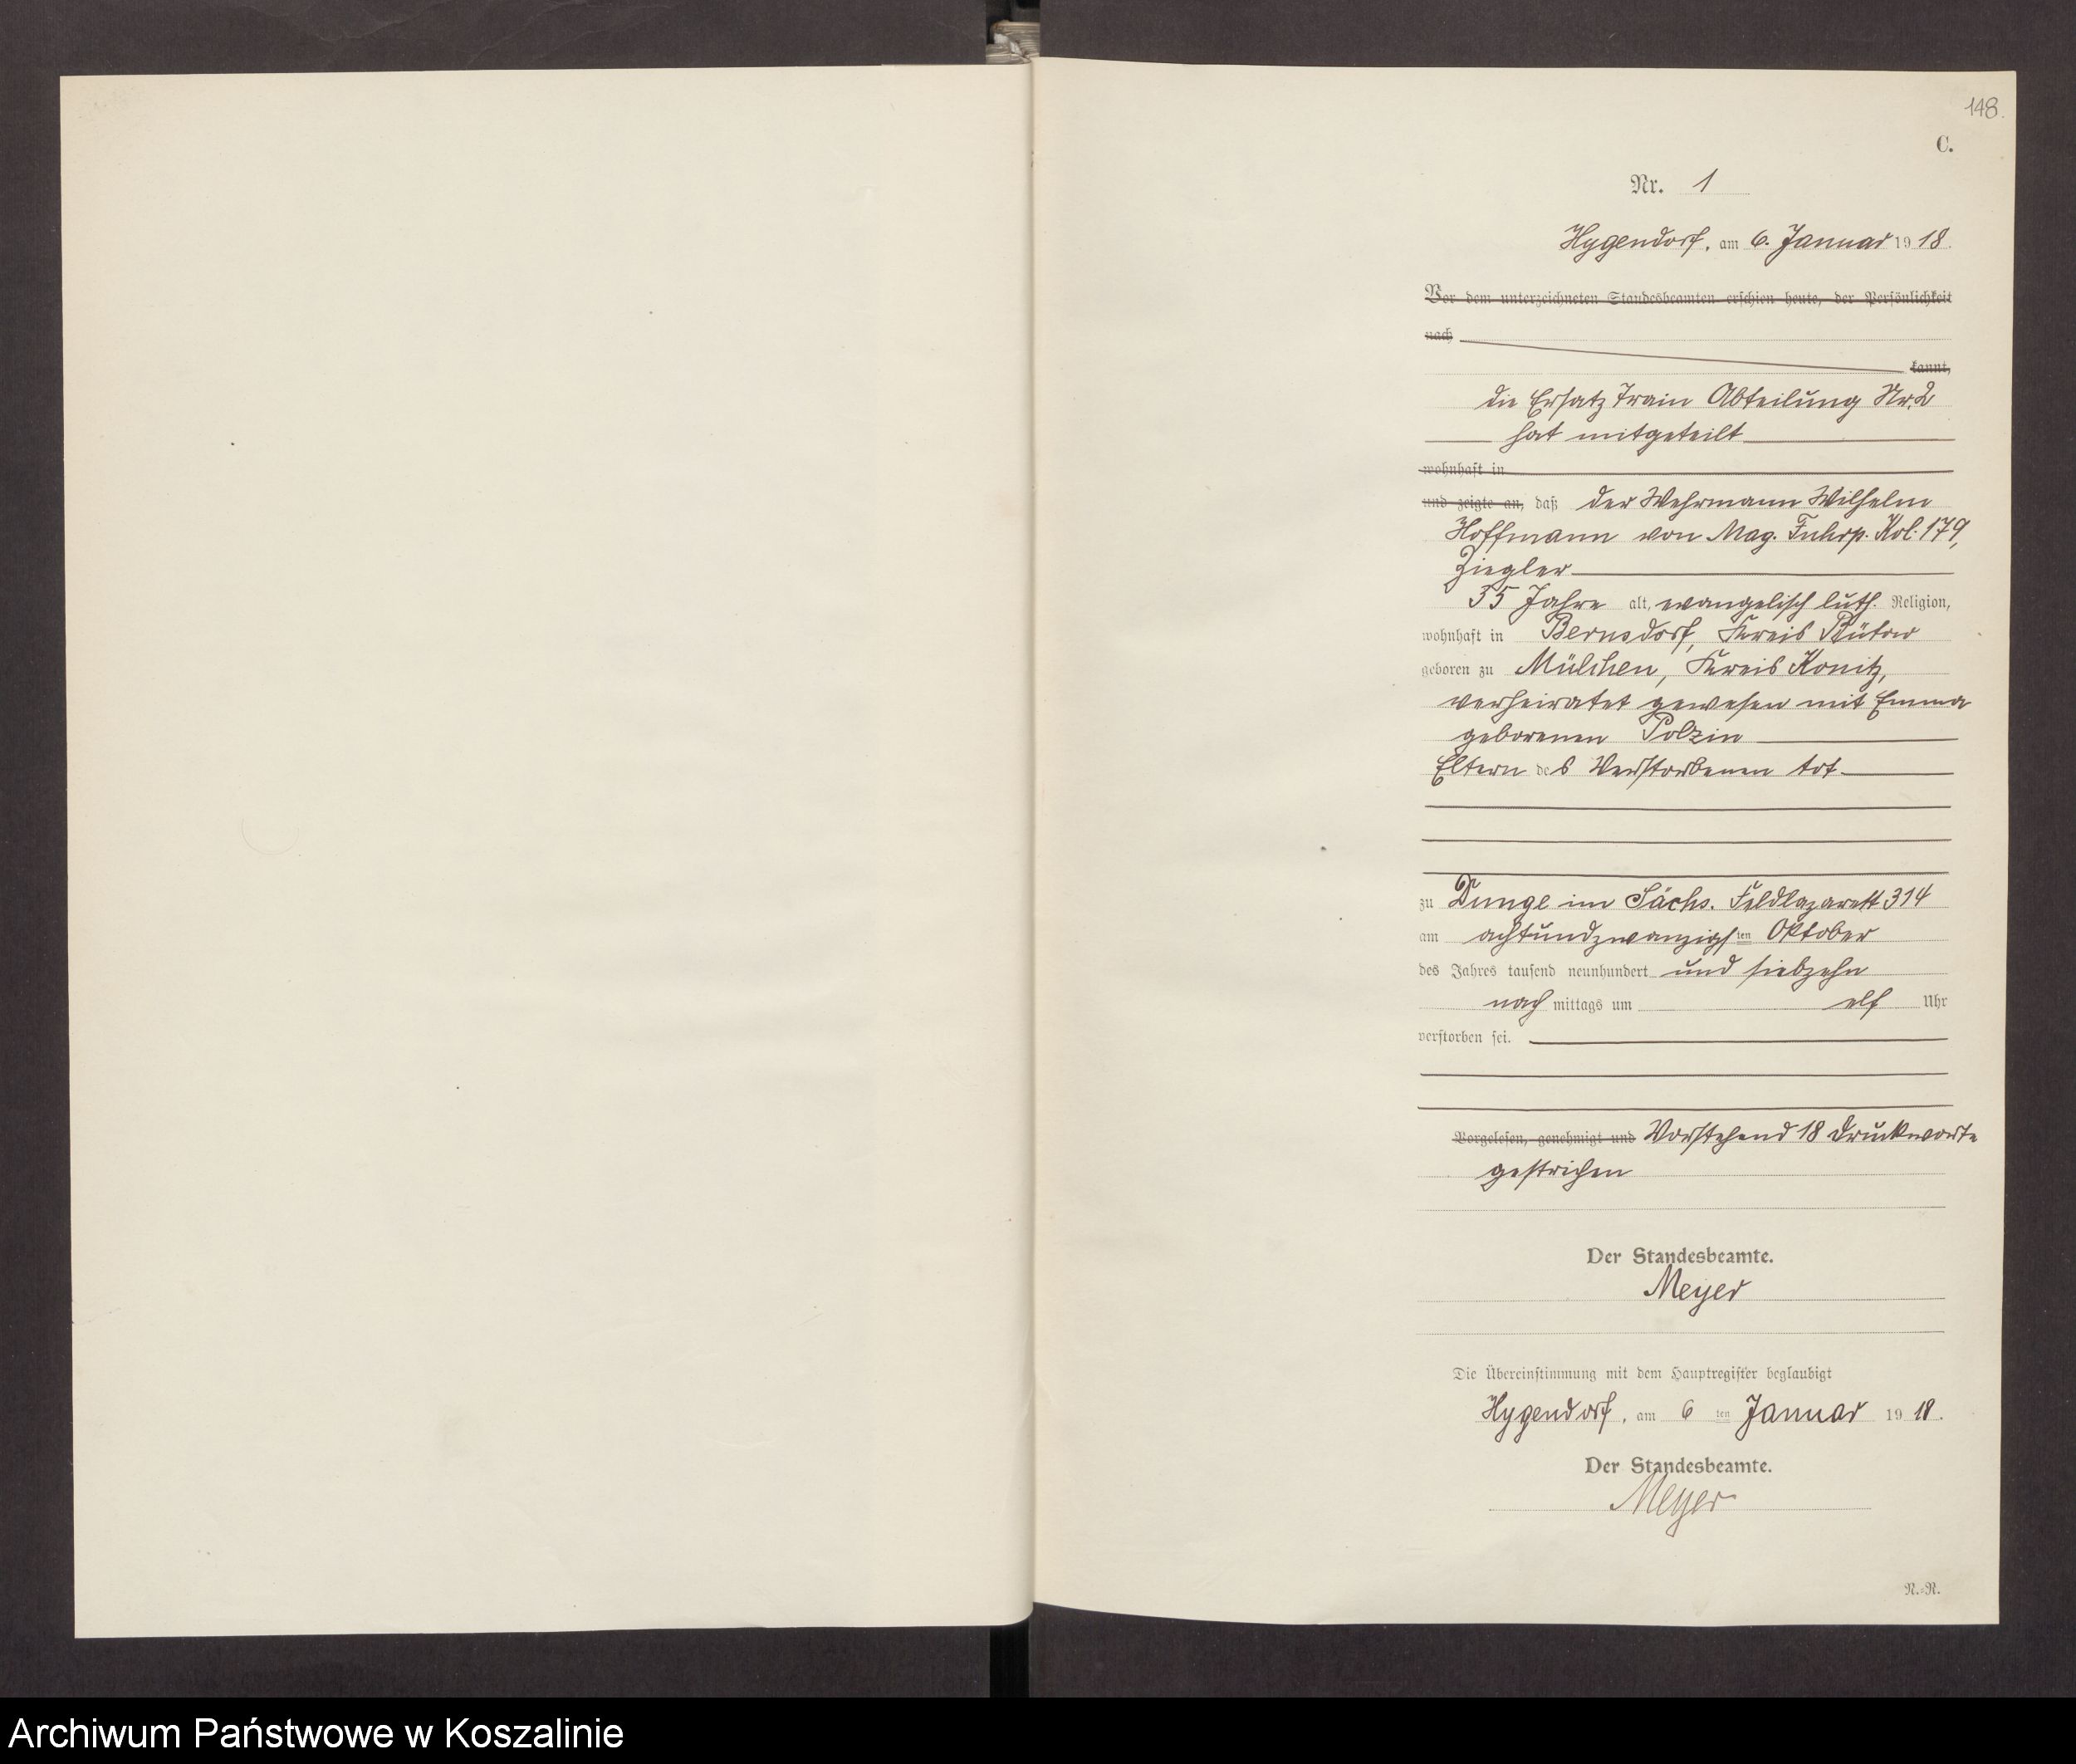 148.
C.
Nr. 1
Hygendorf, am 6. Januar 1918.
Vor dem unterzeichneten Standesbeamten erschien heute, der Persönlichkeit
nach
kannt,
die Ersatz Train Abteilung Nr. 2
hat mitgeteilt
wohnhaft in
und zeigte an, daß der Wehrmann Wilhelm
Hoffmann von Mag. Fuhrp. Kol. 179,
Ziegler
35 Jahre alt, evangelisch luth. Religion,
wohnhaft in Bernsdorf, Kreis Bütow
geboren zu Mülchen, Kreis Konitz,
verheiratet gewesen mit Emma
geborenen Polzin
Eltern des Verstorbenen tot
zu Dunge im Sächs. Feldlazarett 314
am achtundzwanzigsten Oktober
des Jahres tausend neunhundert und siebzehn
nachmittags um elf Uhr
verstorben sei.
Vorgelesen, genehmigt und Vorstehend 18 Druckworte
gestrichen
Der Standesbeamte.
Meyer
Die Übereinstimmung mit dem Hauptregister beglaubigt
Hygendorf, am 6ten Januar 1918.
Der Standesbeamte.
Meyer
N.-R.
Archiwum Państwowe w Koszalinie